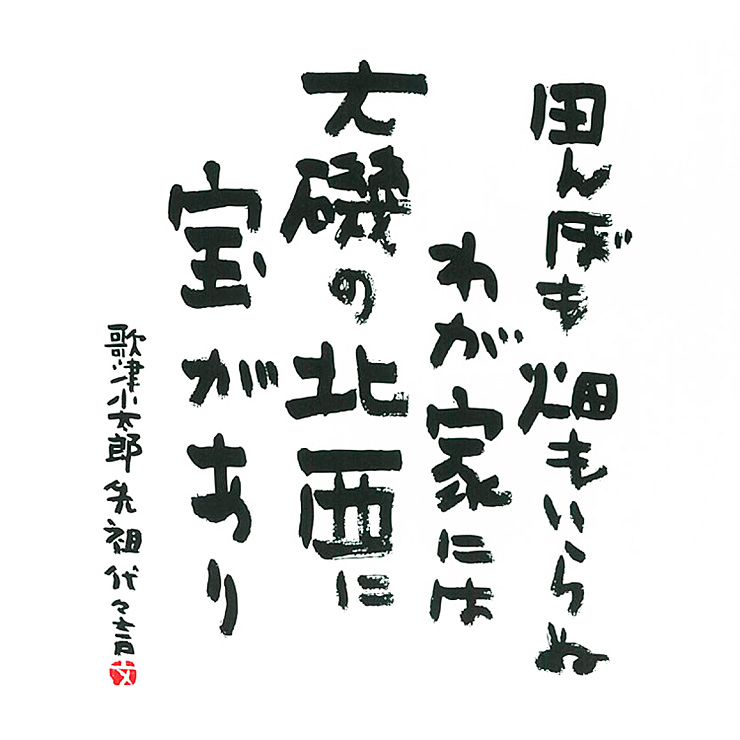 田んぼも畑もいらぬ
わが家には
大磯の北西に
宝があり
歌津小太郎先祖代々言
文